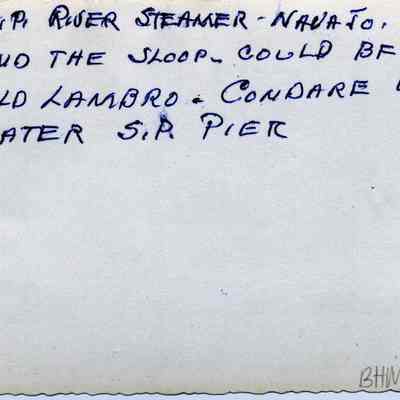 S.P. RIVER STEAMER - NAVAJO.
AND THE SLOOP. COULD BE
OLD LAMBRO. CONDARE
WATER S.P. PIER
BHW